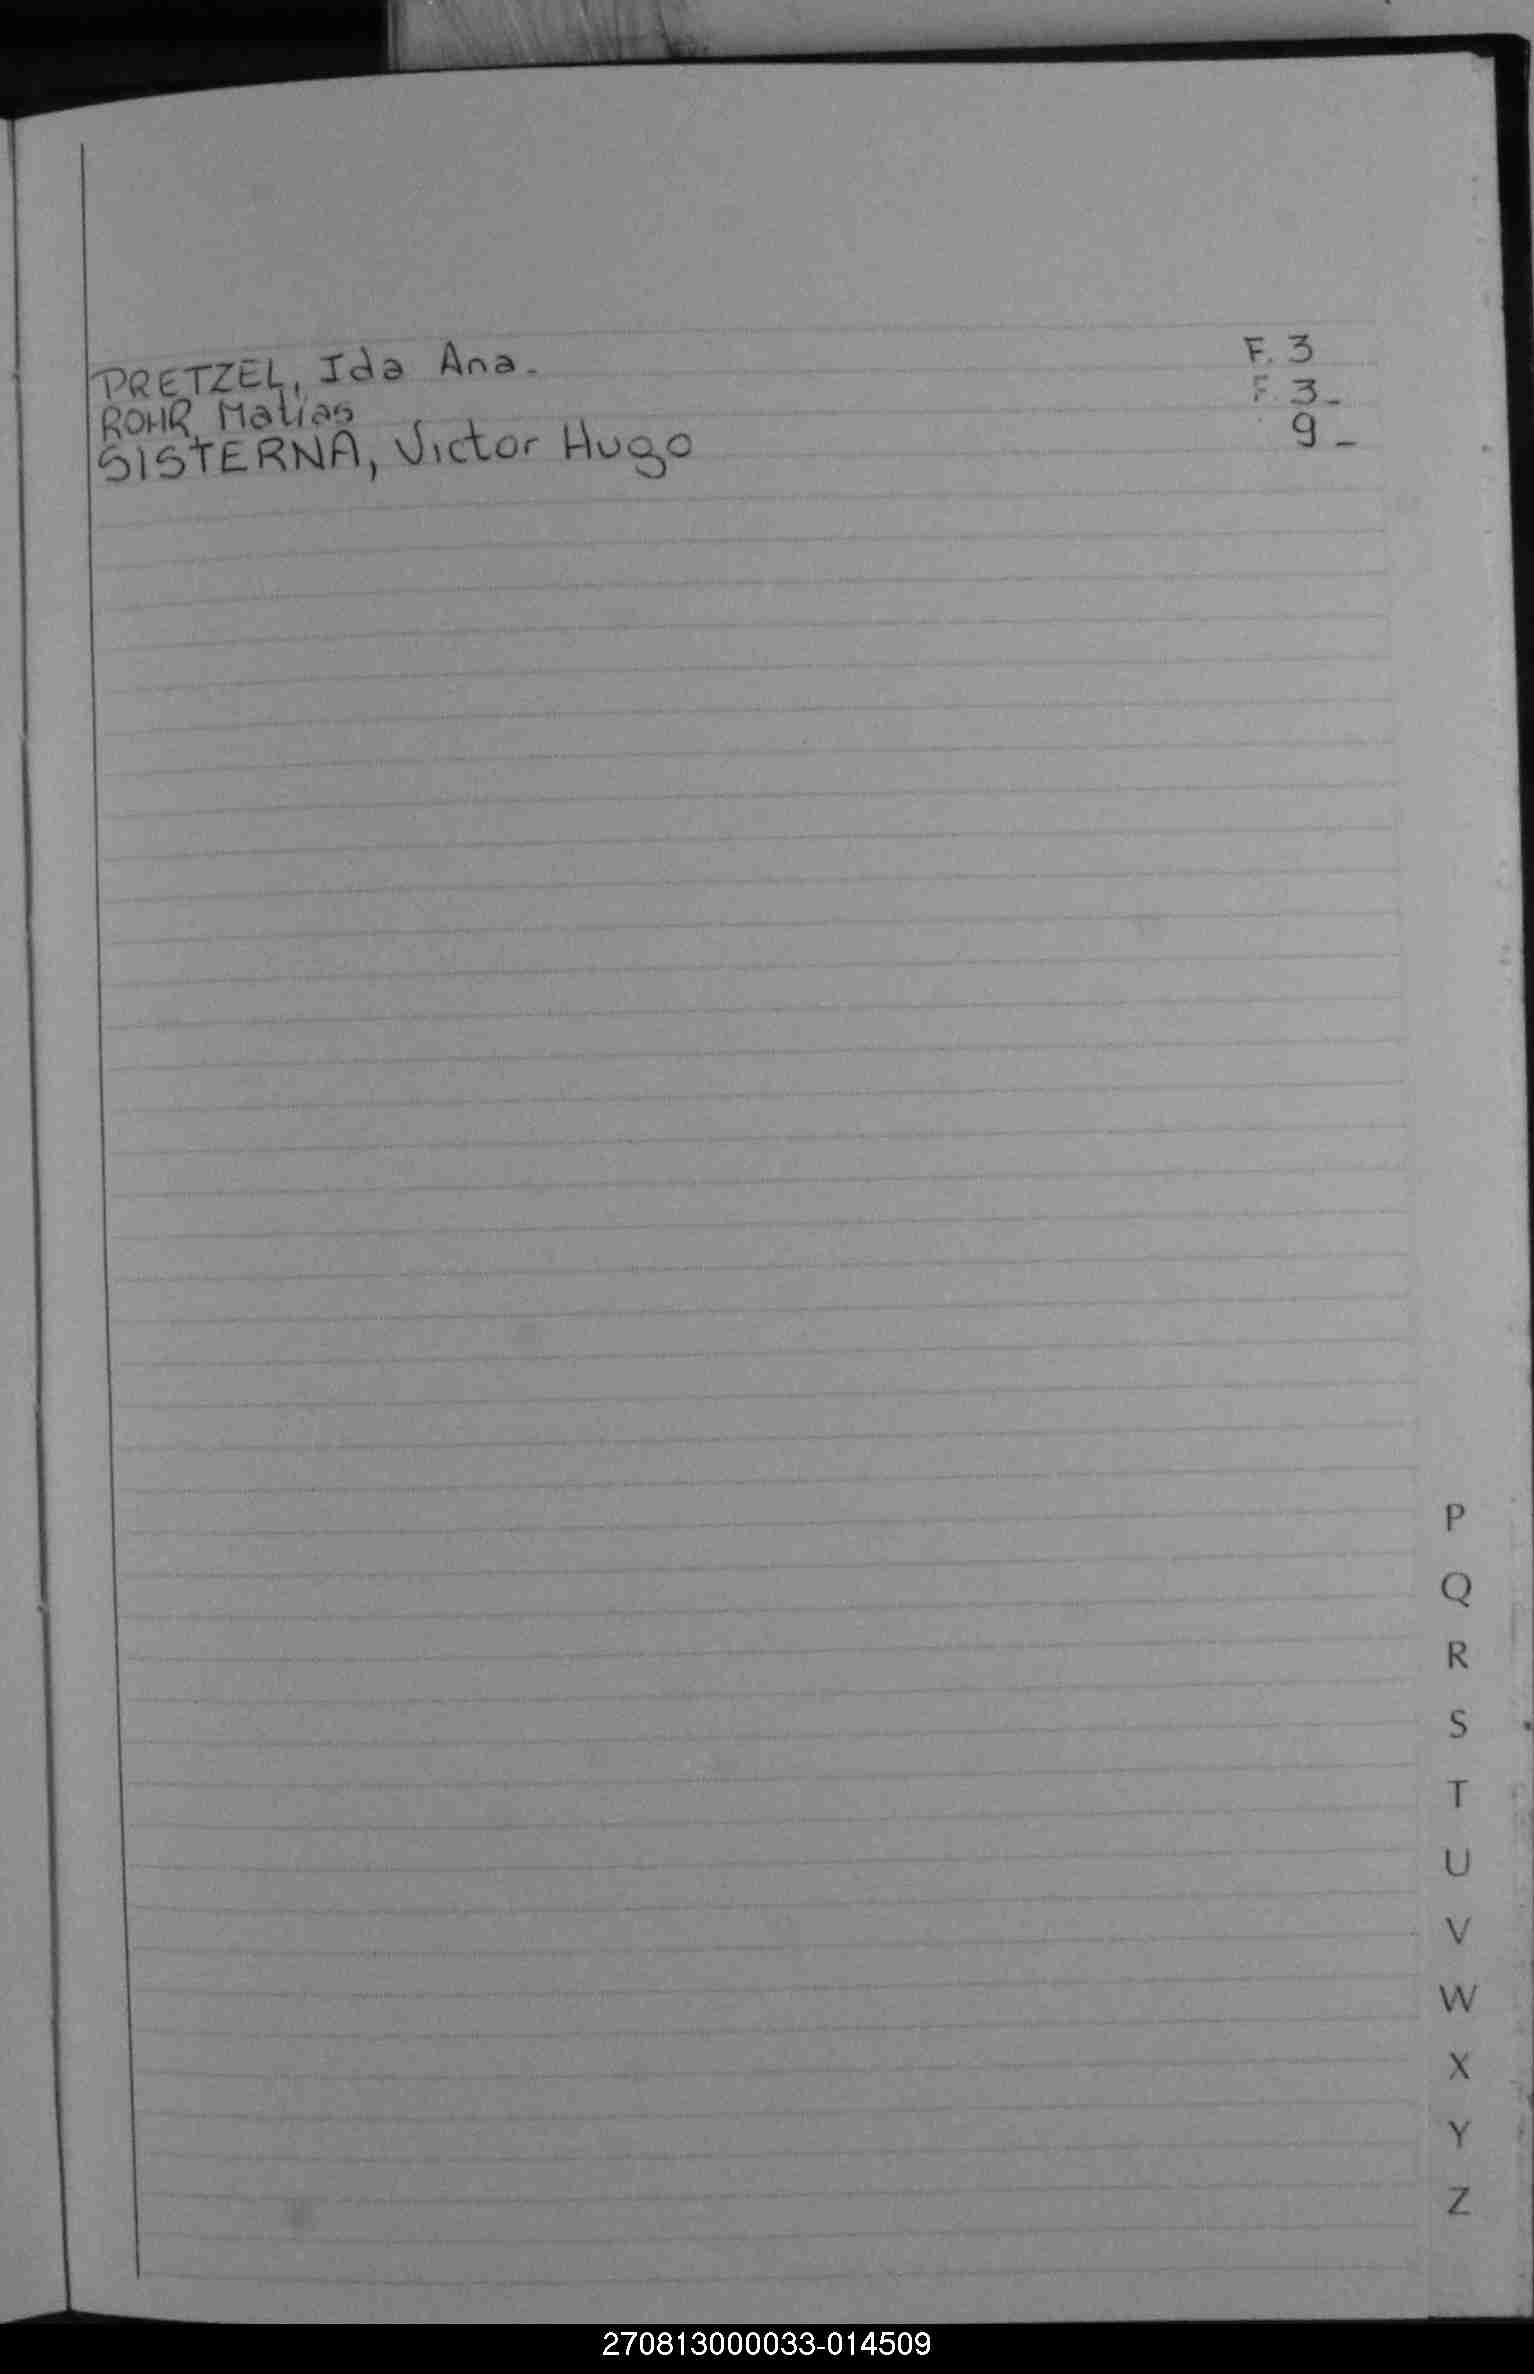 PRETZEL, Ida Ana. F. 3
ROHR, Matías F. 3_
SISTERNA, Victor Hugo 9_
P
Q
R
S
T
U
V
W
X
Y
Z
270813000033-014509